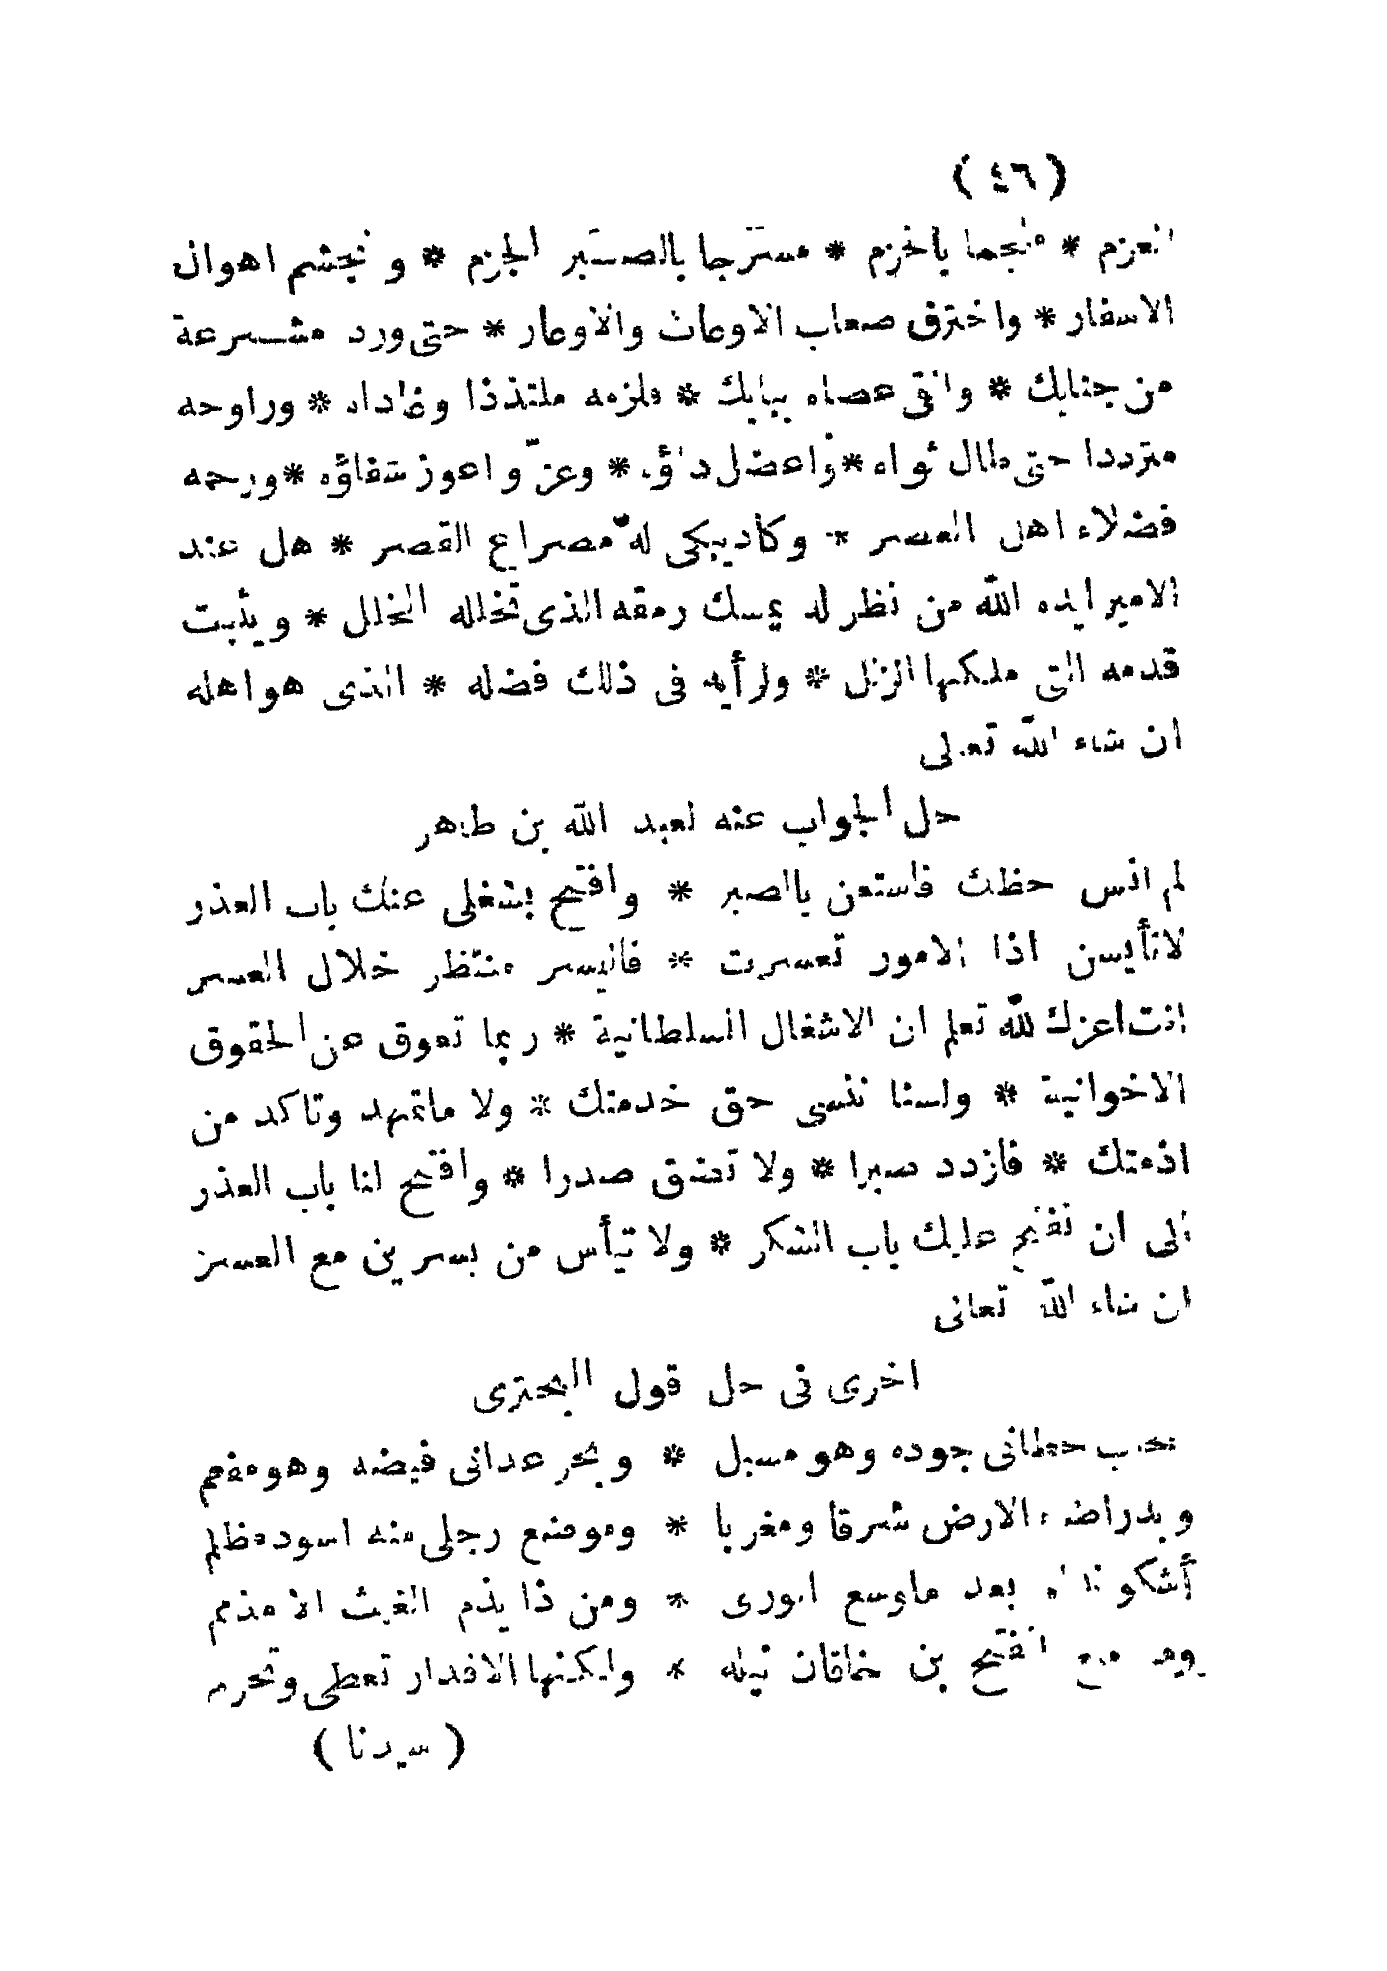 ( ٤٦ )
العزم * ملجما بالحزم * مسترجا بالصبر الجزم * وتجشم اهوال
الاسفار * واخترق صعاب الاوعاث والاوعار * حتى ورد مشرعة
من جنابك * والقى عصاه ببابك * فلزمه ملتذذا وغاداه * وراوحه
مترددا حتى طال ثواه * واعضل داؤه * وعزّ واعوز شفاؤه * ورحمه
فضلاء اهل العصر * وكاد يبكى له مصراع القصر * هل عند
الامير ايده الله من نظر له يمسك رمقه الذى تخلله الخلل * ويثبت
قدمه التى ملكها الزلل * ولرأيه فى ذلك فضله * الذى هو اهله
ان شاء الله تعالى
حل الجواب عنه لعبد الله بن طاهر
لم انس حظك فاستعن بالصبر * وافتح بشغلى عنك باب العذر
لاتأيسن اذا الامور تعسرت * فاليسر منتظر خلال العسر
انت اعزك الله تعلم ان الاشغال السلطانية * ربما تعوق عن الحقوق
الاخوانية * ولسنا ننسى حق خدمتك * ولا ماتمهد وتاكد من
اذمتك * فازدد صبرا * ولا تضق صدرا * وافتح لنا باب العذر
الى ان نفتح عليك باب الشكر * ولا تيأس من يسرين مع العسر
ان شاء الله تعالى
اخرى فى حل قول البحترى
سحاب خطانى جوده وهو مسبل * وبحر عدانى فيضه وهو مفعم
وبدر اضاء الارض شرقا ومغربا * وموضع رجلى منه اسود مظلم
أشكو نداه بعد ماوسع الورى * ومن ذا يذم الغيث الا مذمم
وما منع الفتح بن خاقان نيله * ولكنها الاقدار تعطى وتحرم
( سيدنا )